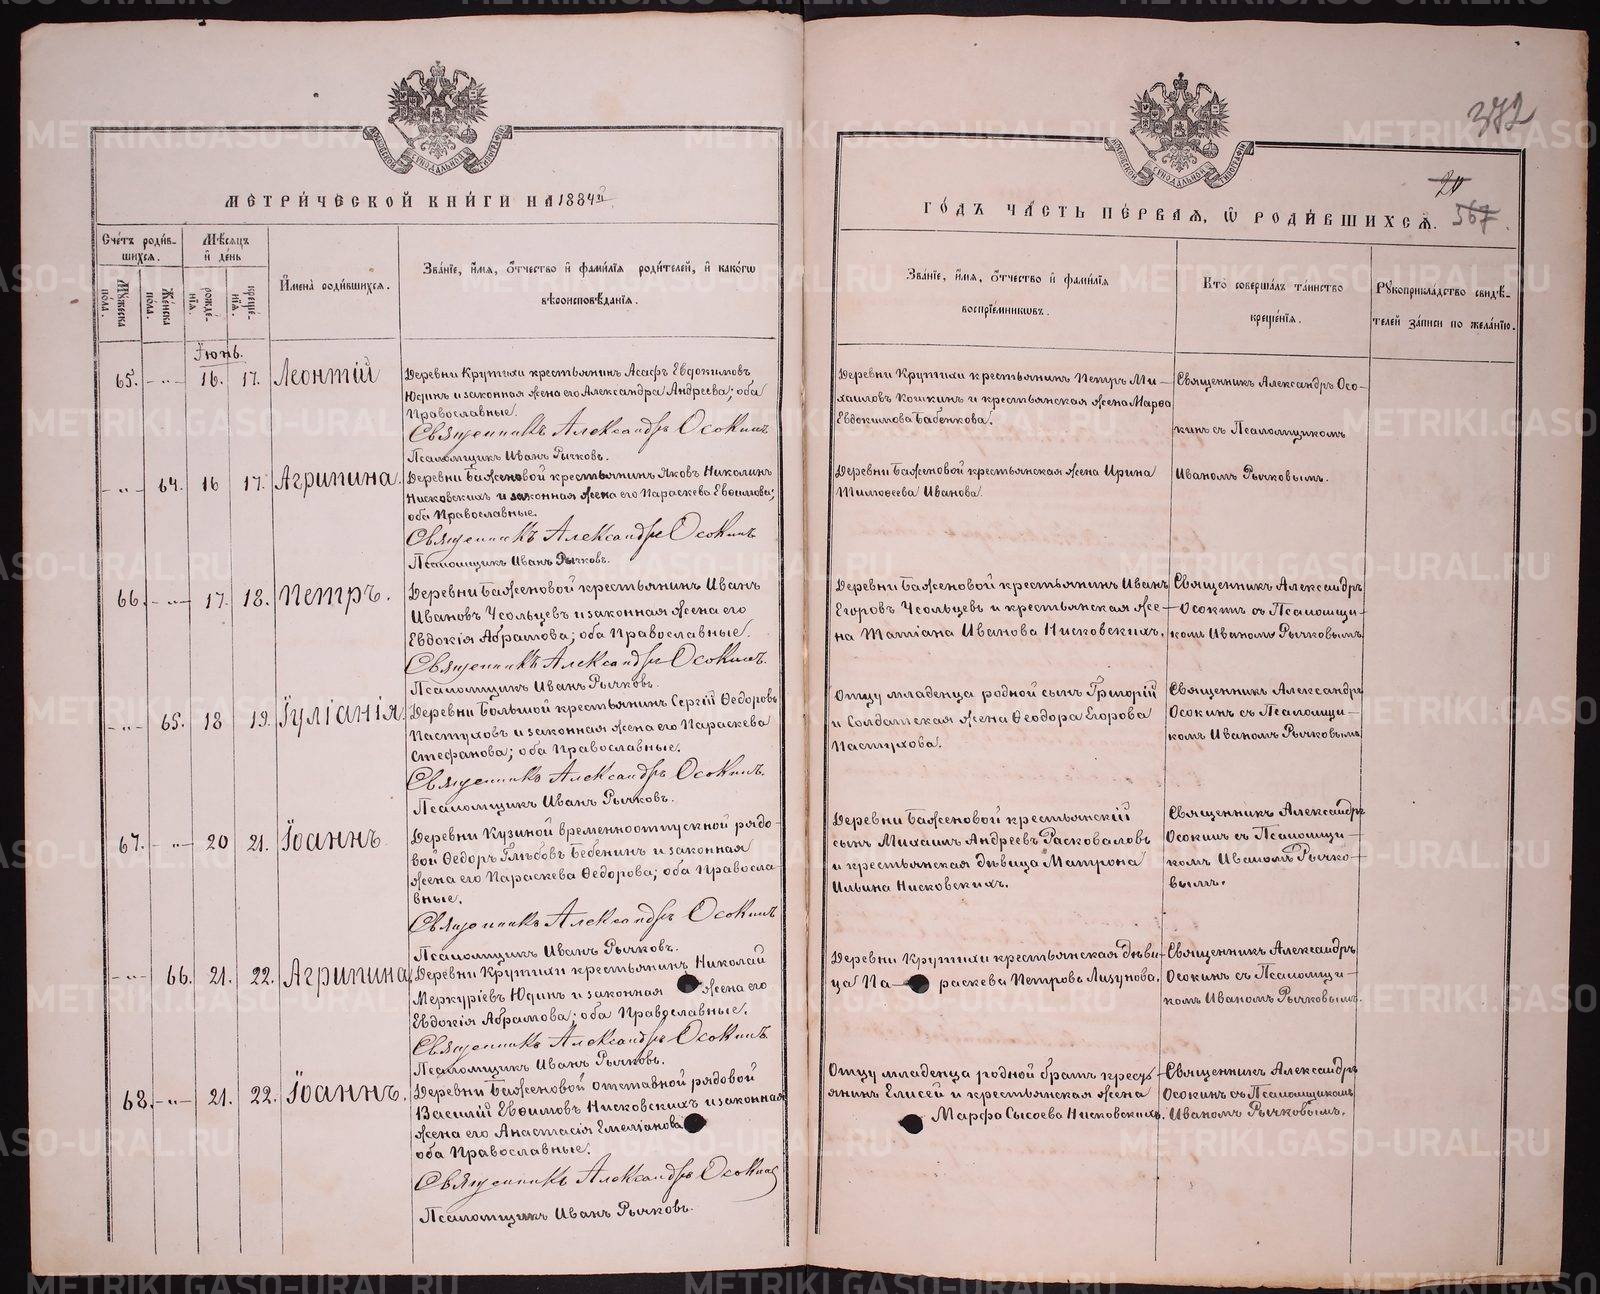 372
20
567
МЕТРИ́ЧЕСКОЙ КНИ́ГИ НА 1884й
ГО́ДЪ ЧА́СТЬ ПЕ́РВАѦ, Ѡ҆ РОДИ́ВШИХСѦ.
Сче́тъ роди́в-
шихсѧ.
Мѣ́сѧцъ
и҆ де́нь
Мꙋ́жеска
пола.
Же́нска
по́ла.
рожде́-
нїѧ.
креще́-
нїѧ.
И҆мена̀ роди́вшихсѧ.
Зва́нїе, и҆́мѧ, ѻ҆́тчество и҆ фами́лїѧ роди́телей, и҆ како́гѡ
вѣроисповѣ́данїѧ.
Зва́нїе, и҆́мѧ, ѻ҆́тчество и҆ фами́лїѧ
воспрїе́мникωвъ.
Кто̀ соверша́лъ та́инство
креще́нїѧ.
Рꙋкоприкла́дство свидѣ́-
телей за́писи по жела́нїю.
Іюнь.
65. -„- 16. 17. Леонтій
Деревни Крутихи крестьянинъ Асафъ Евдокимовъ
Юдинъ и законная жена его Александра Андреева; оба
Православные.
Священникъ Александръ Осокинъ
Псаломщикъ Иванъ Рычковъ.
Деревни Крутихи крестьянинъ Петръ Ми-
хаиловъ Кошкинъ и крестьянская жена Марѳа
Евдокимова Бабенкова.
Священникъ Александръ Осо-
кинъ съ Псаломщикомъ
Иваномъ Рычковымъ.
-„- 64. 16 17. Агрипина.
Деревни Баженовой крестьянинъ Яковъ Николинъ
Нисковскихъ и законная жена его Параскева Евѳимова;
оба Православные.
Священникъ Александръ Осокинъ
Псаломщикъ Иванъ Рычковъ.
Деревни Баженовой крестьянская жена Ирина
Тимоѳеева Иванова.
66. -„- 17. 18. Петръ.
Деревни Баженовой крестьянинъ Иванъ
Ивановъ Усольцевъ и законная жена его
Евдокія Абрамова; оба Православные.
Священникъ Александръ Осокинъ.
Псаломщикъ Иванъ Рычковъ.
Деревни Баженовой крестьянинъ Иванъ
Егоровъ Усольцевъ и крестьянская же-
на Татіана Иванова Нисковскихъ.
Священникъ Александръ
Осокинъ съ Псаломщи-
комъ Иваномъ Рычковымъ
-„- 65. 18 19. Іуліанія.
Деревни Большой крестьянинъ Сергій Ѳедоровъ
Пастуховъ и законная жена его Параскева
Стефанова; оба Православные.
Священникъ Александръ Осокинъ.
Псаломщикъ Иванъ Рычковъ.
Отцу младенца родной сынъ Григорій
и Солдатская жена Ѳеодора Егорова
Пастухова.
Священникъ Александръ
Осокинъ съ Псаломщи-
комъ Иваномъ Рычковымъ
67. -„- 20 21. Іоаннъ
Деревни Кузиной временноотпускной рядо-
вой Ѳедоръ Глѣбовъ Бебенинъ и законная
жена его Параскева Ѳедорова; оба Правосла
вные.
Священникъ Александръ Осокинъ
Псаломщикъ Иванъ Рычковъ.
Деревни Баженовой крестьянскій
сынъ Михаилъ Андреевъ Расковаловъ
и крестьянская дѣвица Матрона
Ильина Нисковскихъ.
Священникъ Александръ
Осокинъ съ Псаломщи-
комъ Иваномъ Рычко-
вымъ.
-„- 66. 21. 22. Агрипина
Деревни Крутихи крестьянинъ Николай
Меркуріевъ Юдинъ и законная жена его
Евдокія Абрамова; оба Православные.
Священникъ Александръ Осокинъ.
Псаломщикъ Иванъ Рычковъ.
Деревни Крутихи крестьянская дѣви-
ца Па- раскева Петрова Лизунова.
Священникъ Александръ
Осокинъ съ Псаломщи-
комъ Иваномъ Рычковымъ.
68. -„- 21. 22. Іоаннъ.
Деревни Баженовой отставной рядовой
Василій Евѳимовъ Нисковскихъ и законная
жена его Анастасія Емеліанова
оба Православные.
Священникъ Александръ Осокинъ
Псаломщикъ Иванъ Рычковъ.
Отцу младенца родной братъ кресть-
янинъ Елисей и крестьянская жена
Марфа Сысоева Нисковскихъ.
Священникъ Александръ
Осокинъ съ Псаломщикомъ
Иваномъ Рычковымъ.
METRIKI.GASO-URAL.RU